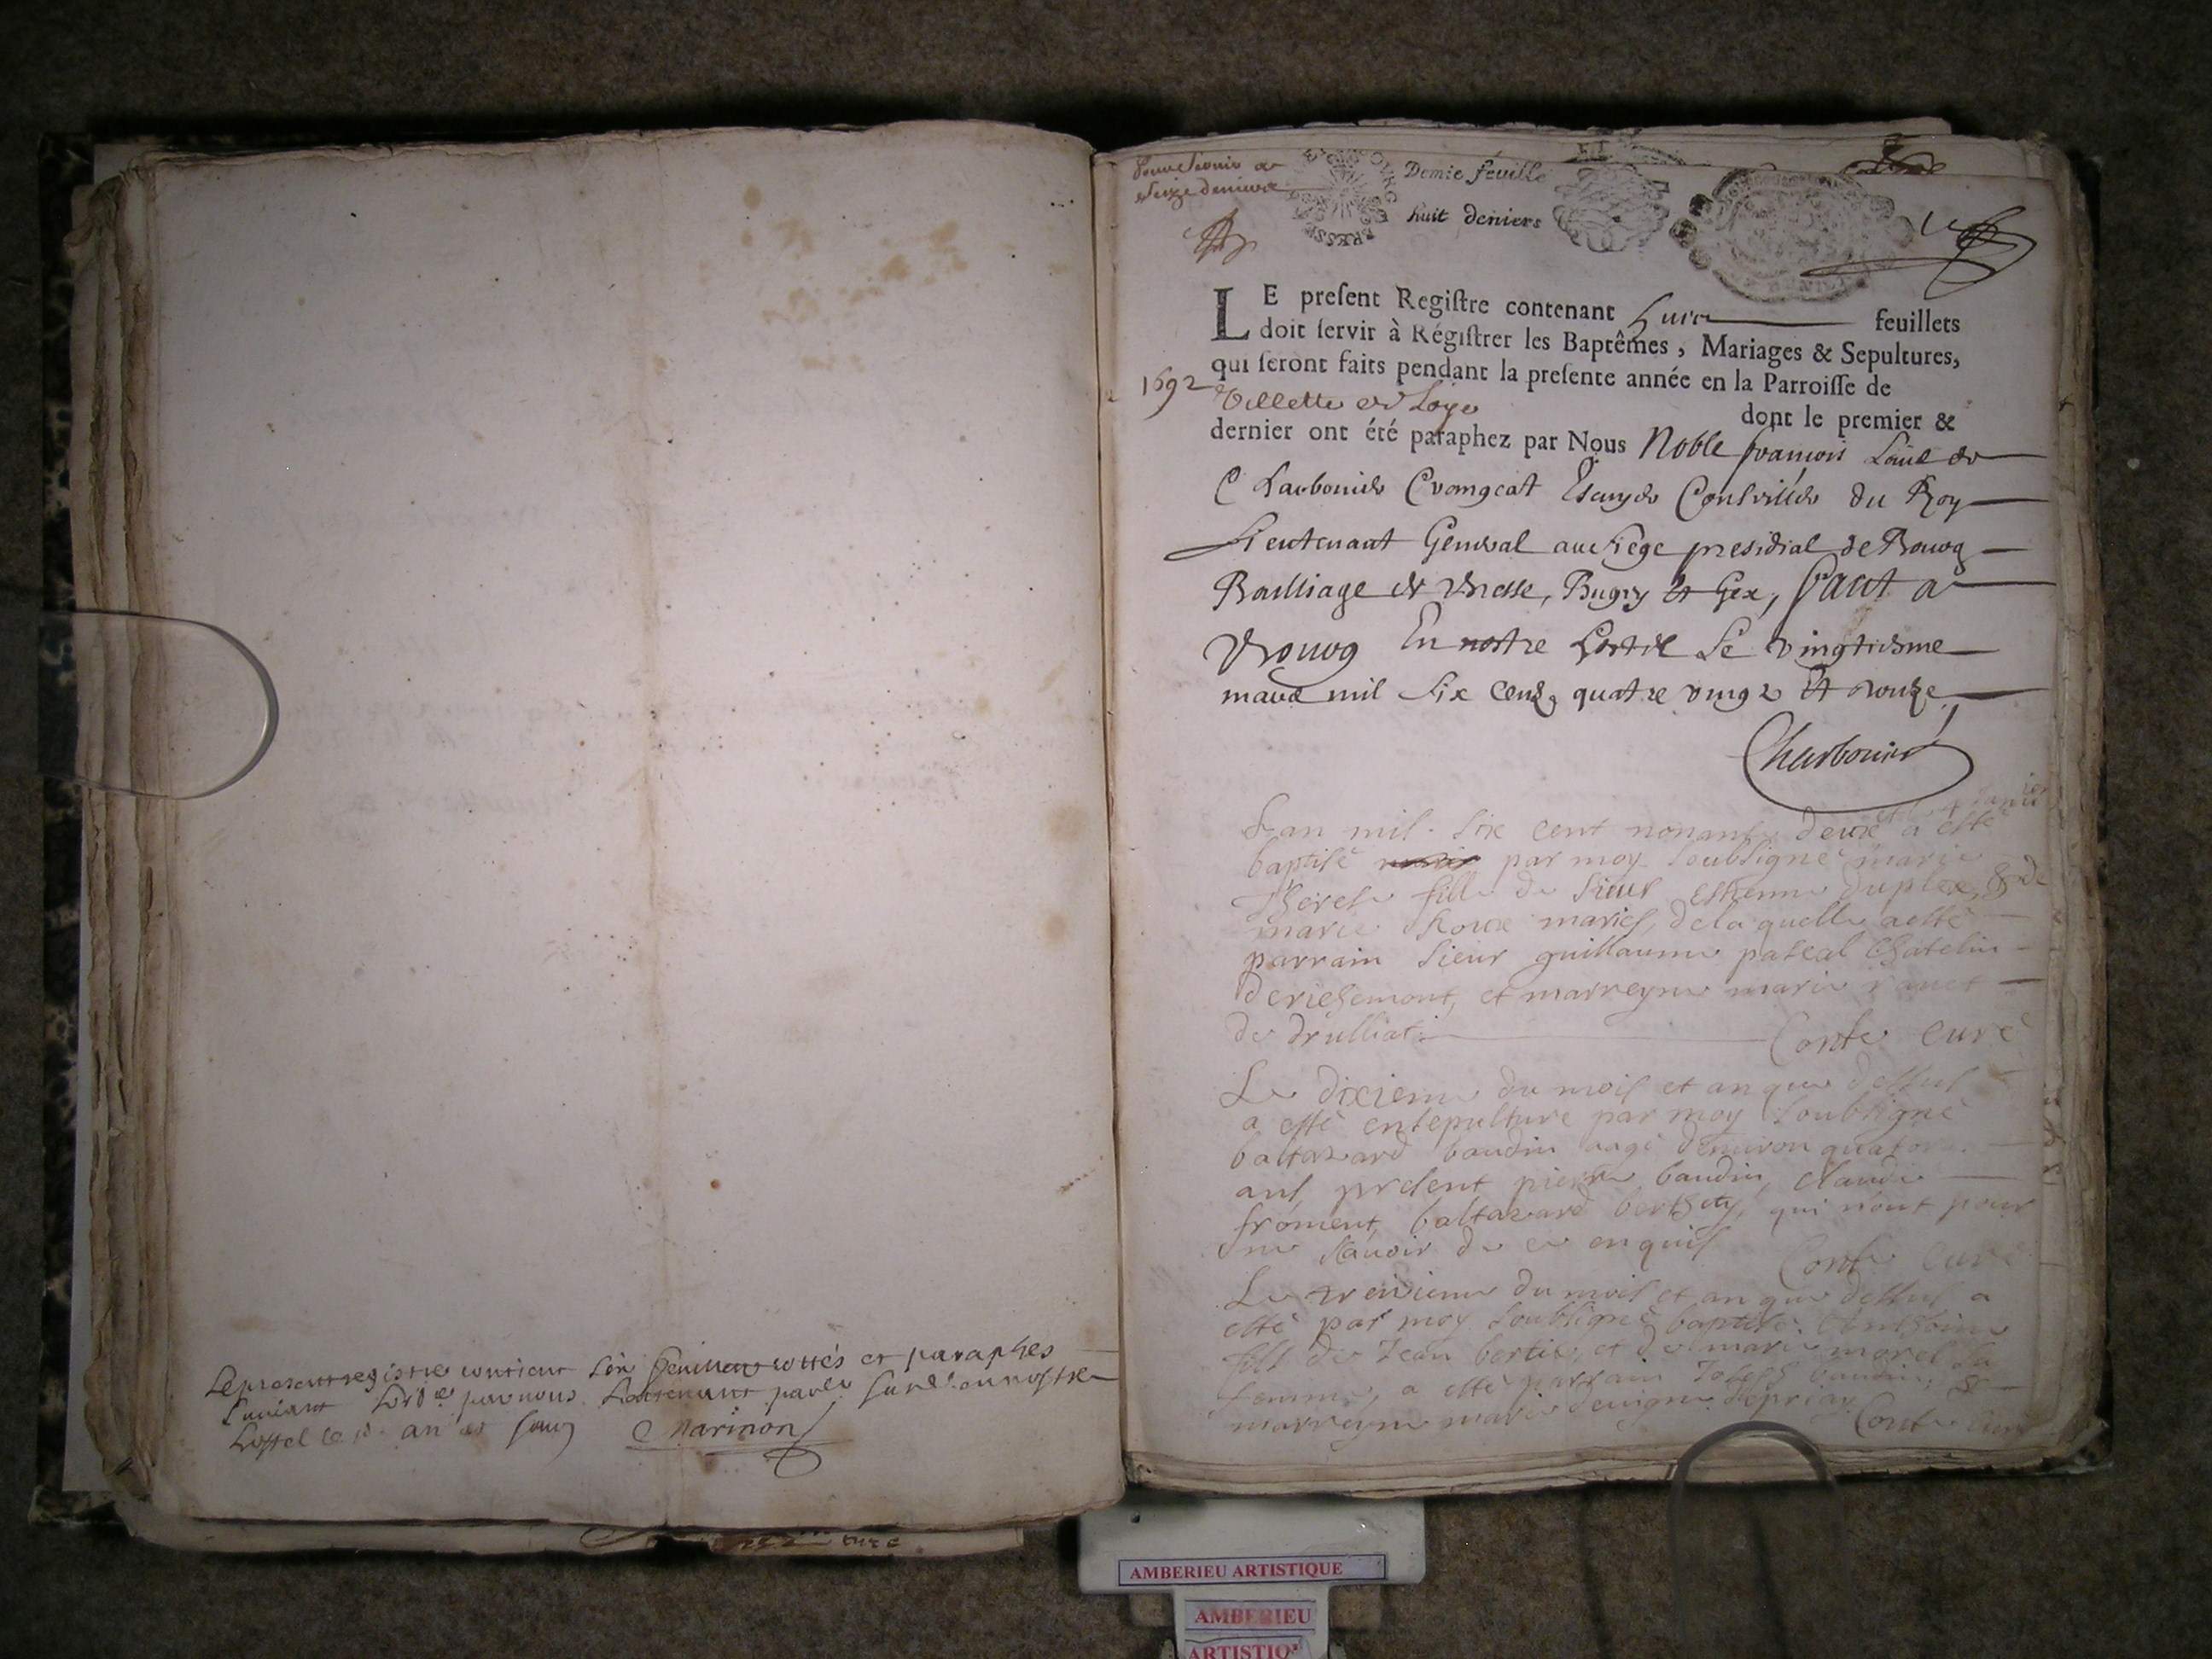 Le present registre contient six feuillets cottés et paraphés
suivant par nous Lieutenant
hostel le an et jour Marinon
seize deniers
Demie feuille
huit deniers
LE preſent Regiſtre contenant feuillets
doit ſervir à Régiſtrer les Baptêmes, Mariages & Sepultures,
qui ſeront faits pendant la preſente année en la Parroiſſe de
1692 Villette et Loye dont le premier &
dernier ont été paraphez par Nous Noble françois Louis de
Charbonier Crangeat Escuyer Conseiller du Roy
Lieutenant General au siege presidial de Bourg
Bailliage de Bresse, Bugey et Gex, faict a
Bourg En nostre hostel le vingtiesme
mars mil six cens quatre vingt et onze
Charbonier
L'an mil six cent nonante deux et le 4 janvier a esté
baptisé par moy soubsigné marie
Therese fille de sieur Estienne duplex, & de
marie Roux mariés, de la quelle a esté
parrain sieur guillaume pascal Chatelin
de richemont, et marreyne marie
de drulliat Conte curé
Le dixieme du mois et an que dessus
a esté ensepulturé par moy soubsigné
baltazard baudin aagé d'environ
ans, present pierre baudin, claude
froment, baltazard berthet, qui n'ont pour
ne sçavoir de ce enquis Conte curé
Le treizieme du mois et an que dessus a
esté par moy soubsigné baptisé Anthoine
fils de Jean bertin, et de marie morel sa
femme, a esté parrain Joseph baudin, &
marreyne marie Conte curé
AMBERIEU ARTISTIQUE
AMBERIEU
ARTISTIQ